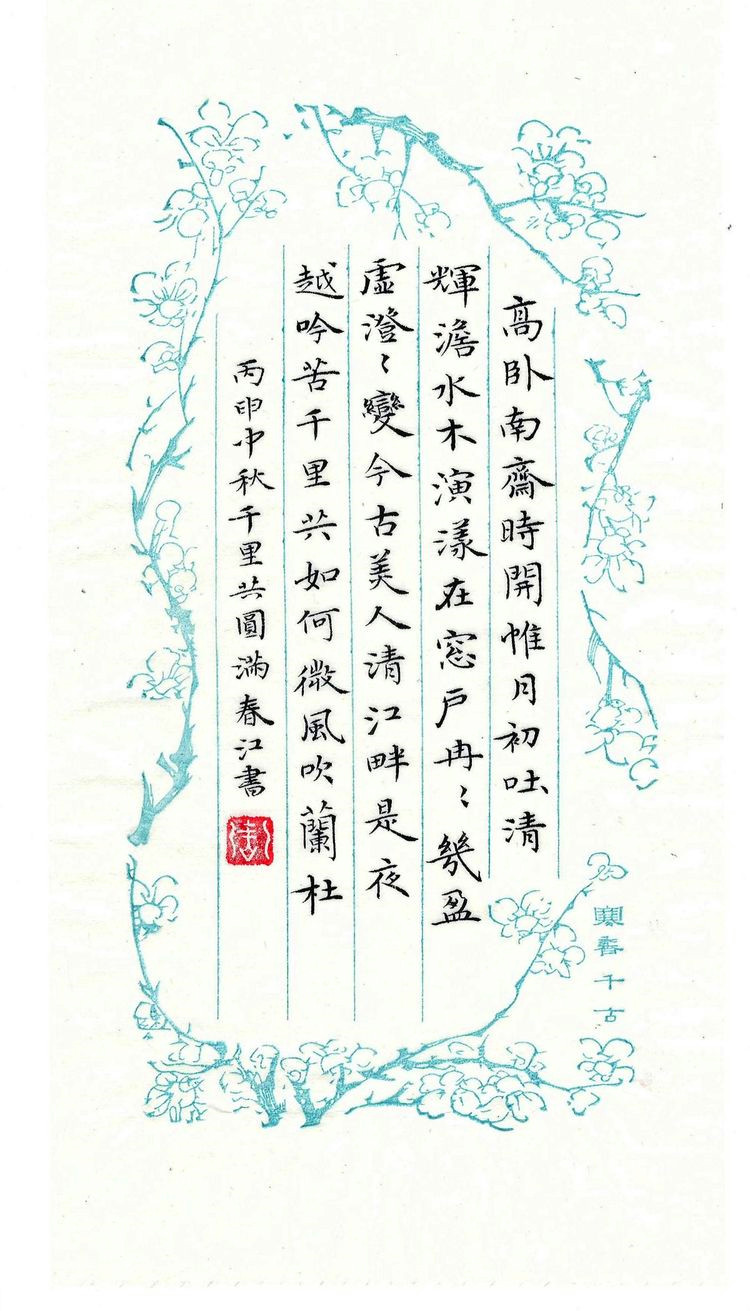 高卧南齋時開帷月初吐清
輝澹水木演漾在窓戶冉〻幾盈
虛澄〻變今古美人清江畔是夜
越吟苦千里共如何微風吹蘭杜
丙申中秋千里共圓滿春江書
周
寒香千古